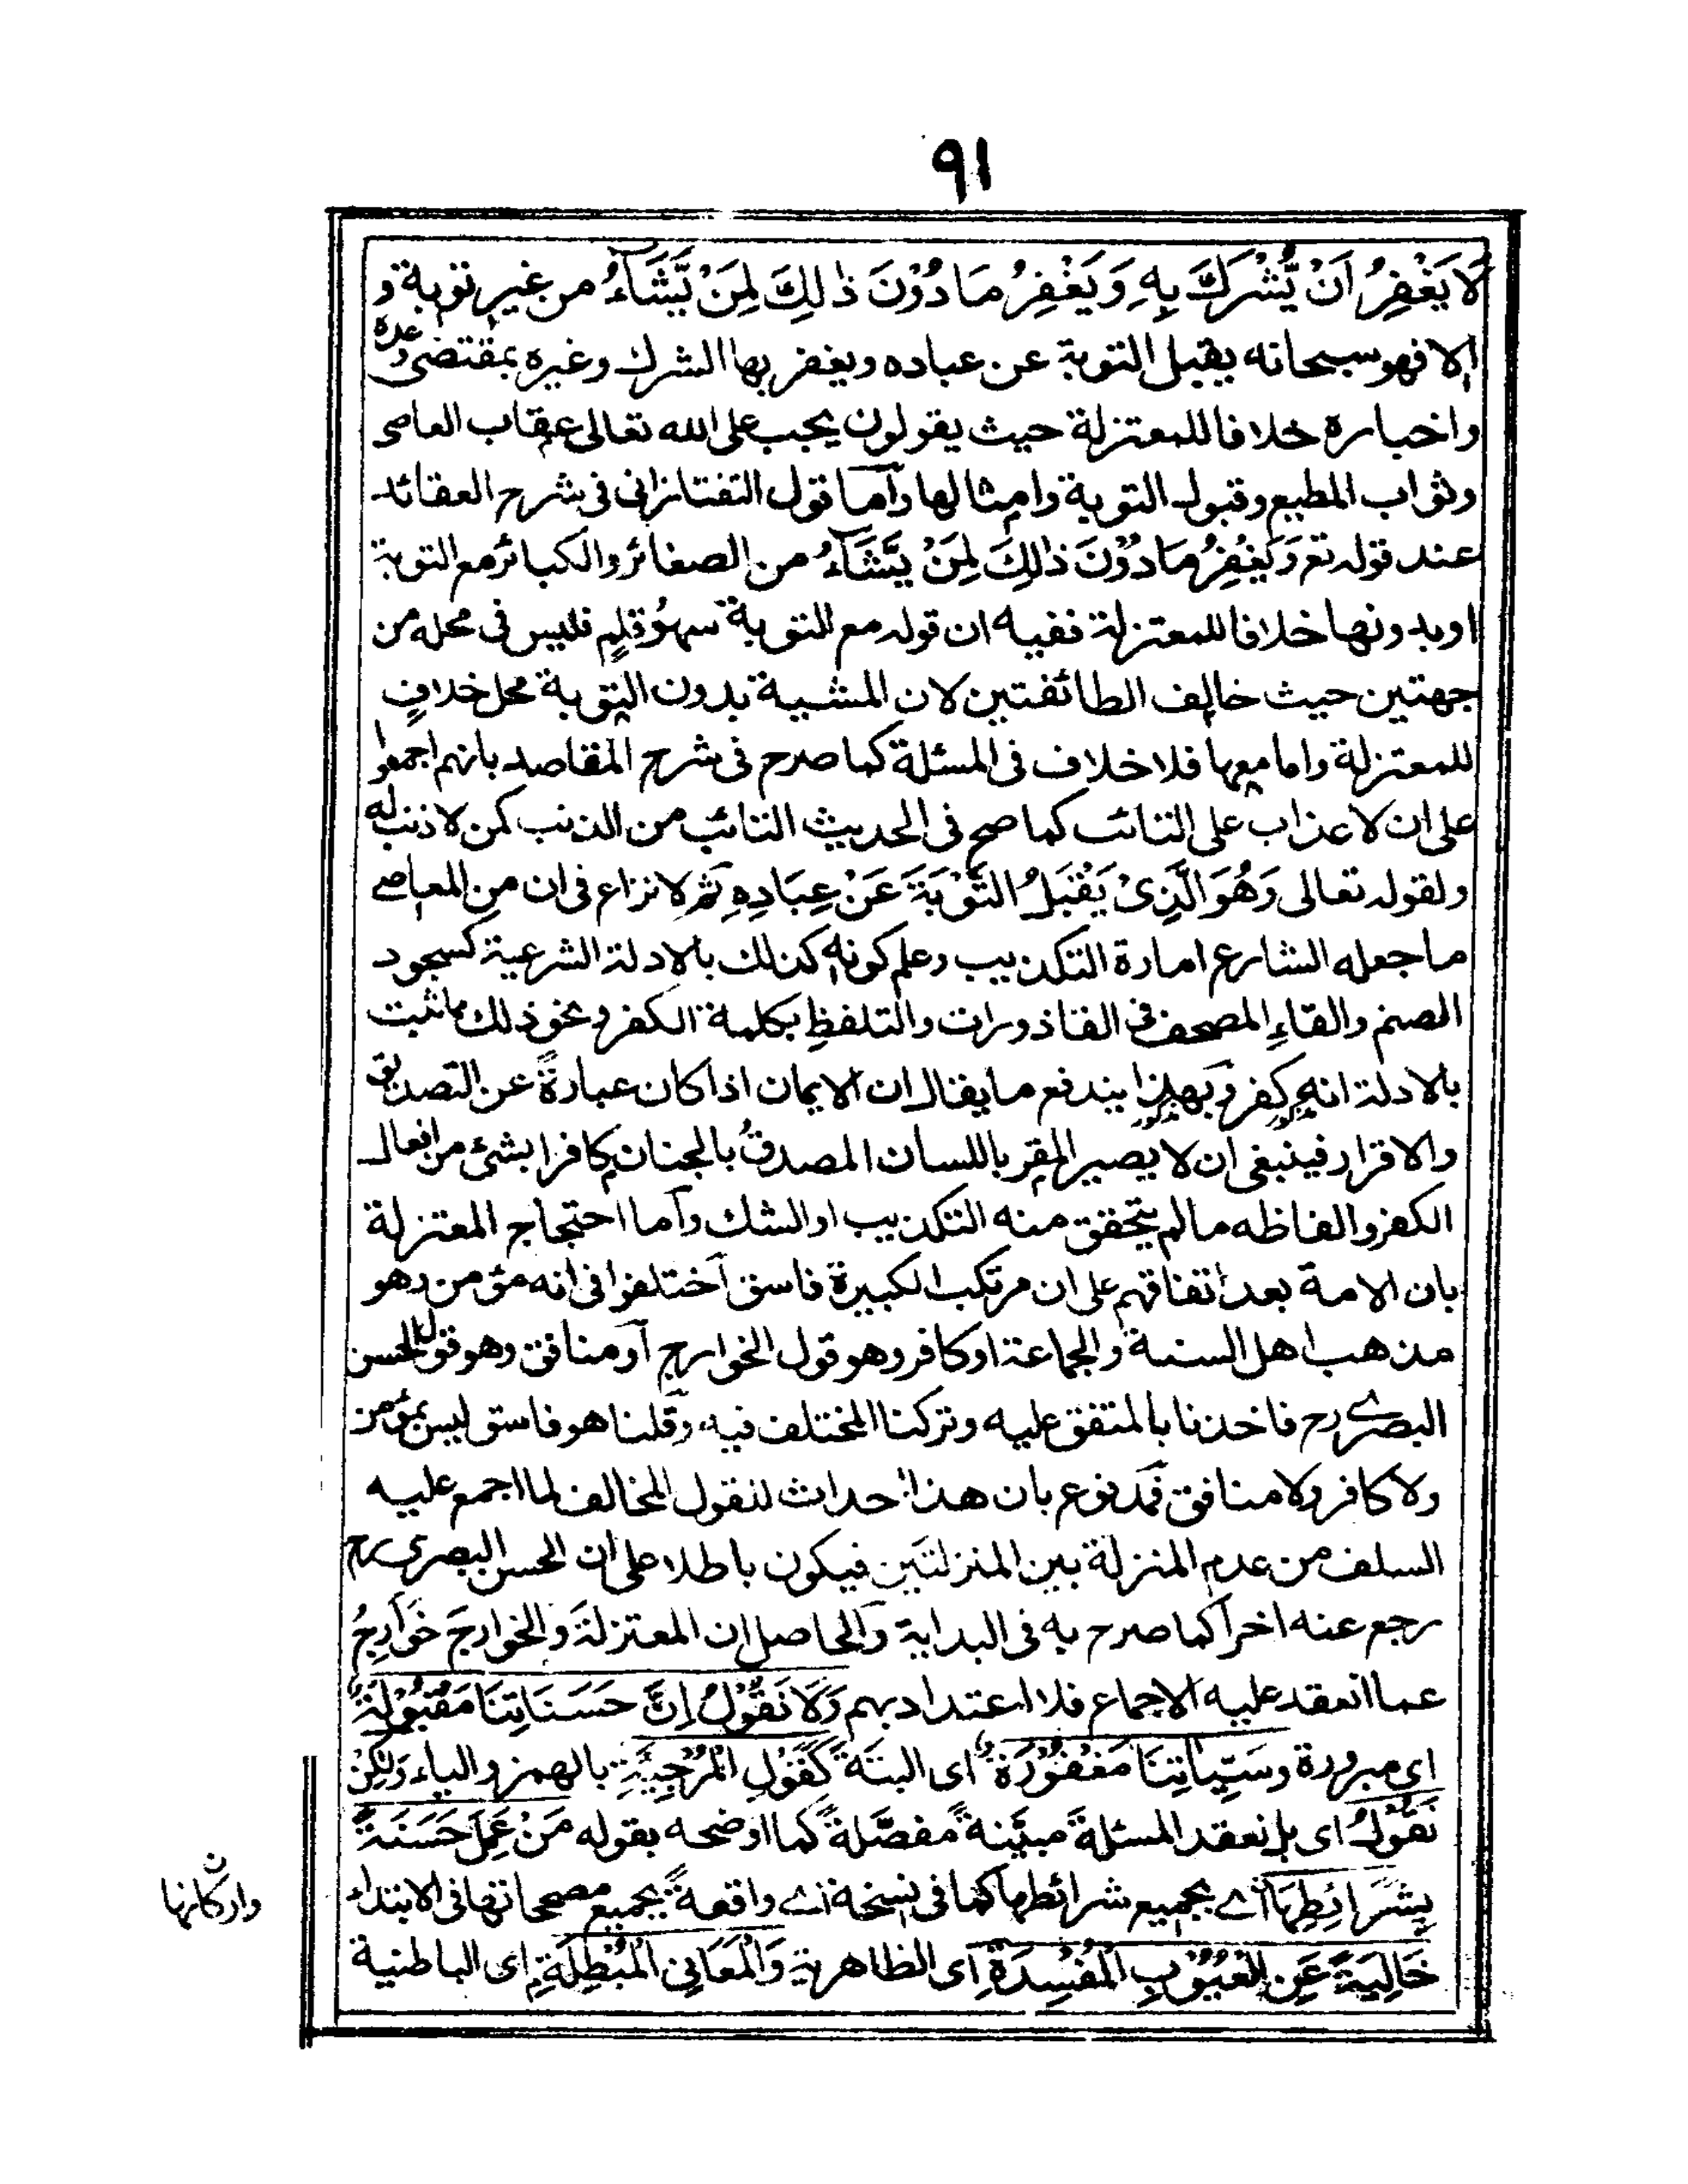 ٩١
لَا يَغْفِرُ اَنْ يُّشْرَكَ بِهٖ وَيَغْفِرُ مَا دُوْنَ ذٰلِكَ لِمَنْ يَّشَآءُ من غير توبة و
الا فهو سبحانه يقبل التوبة عن عباده ويغفر بها الشرك وغيره بمقتضى وعده
واخباره خلافا للمعتزلة حيث يقولون يجب على الله تعالى عقاب العاصى
وثواب المطيع وقبول التوبة وامثالها وآما قول التفتازانى فى شرح العقائد
عند قوله تع وَيَغْفِرُ مَا دُوْنَ ذٰلِكَ لِمَنْ يَّشَآءُ من الصغائر والكبائر مع التوبة
او بدونها خلافا للمعتزلة ففيه ان قوله مع التوبة سهوُ قلمٍ فليس فى محله من
جهتين حيث خالف الطائفتين لان المشية بدون التوبة محل خلافٍ
للمعتزلة واما معها فلا خلاف فى المسئلة كما صرح فى شرح المقاصد بانهم اجمعوا
على ان لا عذاب على التائب كما صح فى الحديث التائب من الذنب كمن لا ذنب له
ولقوله تعالى وَهُوَ الَّذِىْ يَقْبَلُ التَّوْبَةَ عَنْ عِبَادِهٖ ثم لا نزاع فى ان من المعاصے
ما جعله الشارع امارة التكذيب وعلم كونه كذلك بالادلة الشرعية كسجود
الصنم والقاءِ المصحف فى القاذورات والتلفظِ بكلمة الكفر ونحو ذلك ما ثبت
بالادلة انه كفر وبهذا يندفع ما يقال ان الايمان اذا كان عبارةً عن التصديق
والاقرار فينبغى ان لا يصير المقر باللسان المصدقُ بالجنان كافرا بشئ من افعال
الكفر والفاظه ما لم يتحقق منه التكذيب او الشك وآما احتجاج المعتزلة
بان الامة بعد اتفاقهم على ان مرتكب الكبيرة فاسق آختلفوا فى انه مؤمن وهو
مذهب اهل السنة والجماعة او كافر وهو قول الخوارج آو منافق وهو قول الحسن
البصرے رح فاخذنا بالمتفق عليه وتركنا المختلف فيه وقلنا هو فاسق ليس بمؤمن
ولا كافر ولا منافق فمدفوع بان هذا احداث لنقول المخالف لما اجمع عليه
السلف من عدم المنزلة بين المنزلتَين فيكون باطلا على ان الحسن البصرى رح
رجع عنه اخرا كما صرح به فى البداية وآلحاصل ان المعتزلةَ والخوارجَ خَوَارِجُ
عما انعقد عليه الاجماع فلا اعتداد بهم وَلَا نَقُوْلُ اِنَّ حَسَنَاتِنَا مَقْبُوْلَةٌ
اى مبرورة وسَيِّاٰتِنَا مَغْفُوْرَةٌ اى البتة كَقَوْلِ الْمُرْجِيَّةِ بالهمز والياء وَلٰكِنْ
نَقُوْلُ اى بل نعقد المسئلةَ مبيَّنةً مفصَّلةً كما اوضحه بقوله مَنْ عَمِلَ حَسَنَةً
بِشَرَائِطِهَا اے بجميع شرائطها كما فى نسخة اے واقعةً بجميع مصححاتها فى الابتداء
خَالِيَةً عَنِ الْعُيُوْبِ الْمُفْسِدَةِ اى الظاهرية وَالْمَعَانِى الْمُبْطِلَةِ اى الباطنية
ن
واركانها